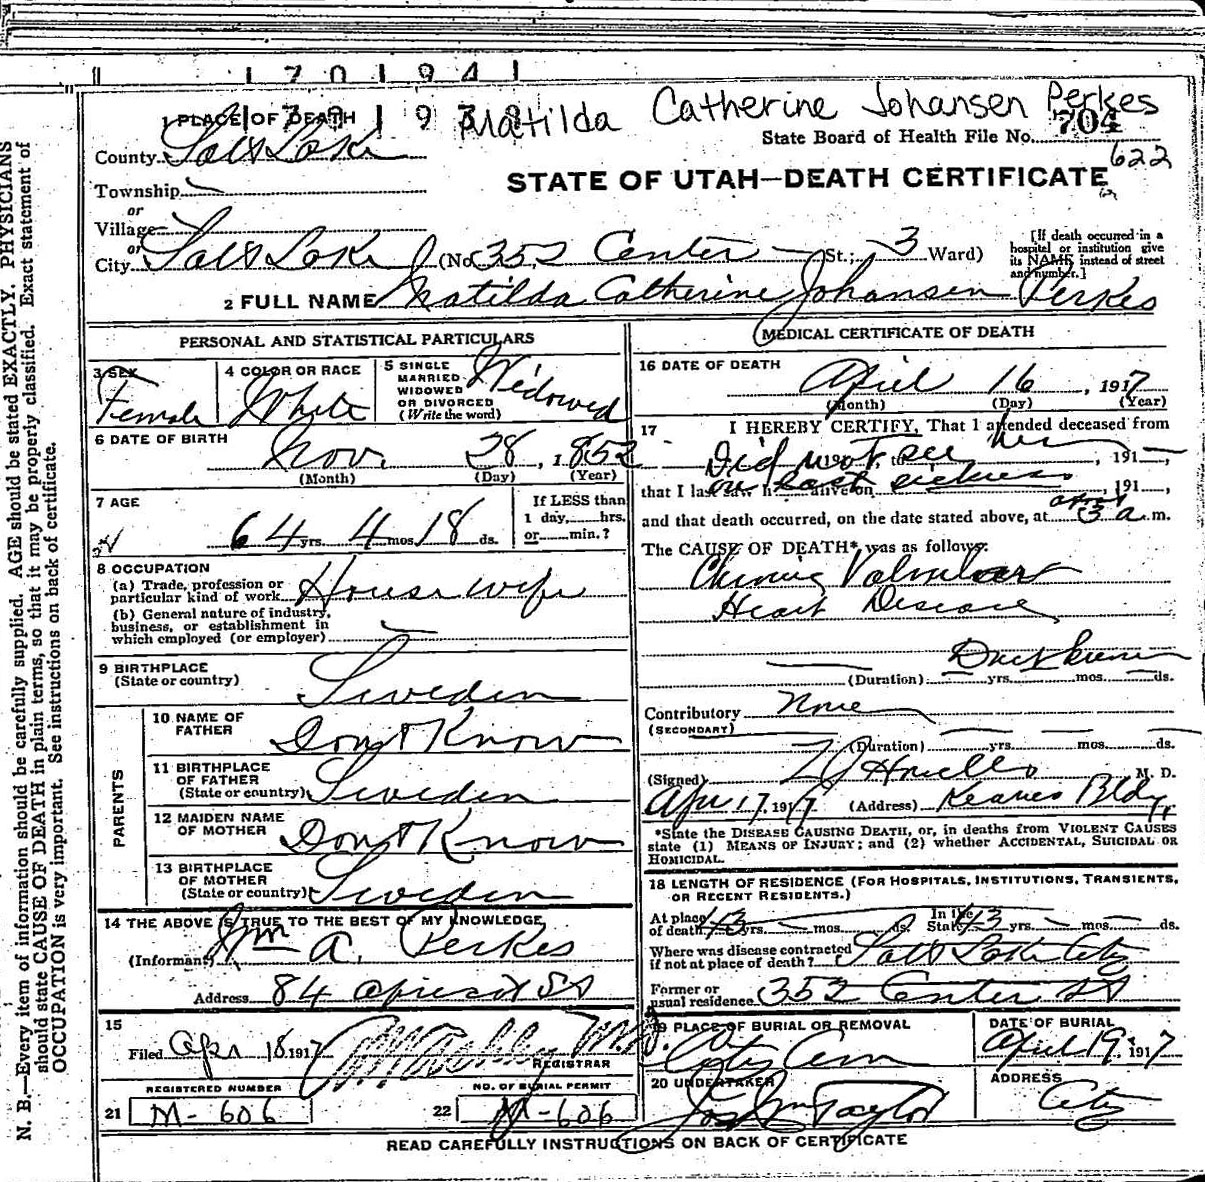 1701941
1 PLACE OF DEATH
Matilda Catherine Johansen Perkes
State Board of Health File No. 704
622
County Salt Lake
STATE OF UTAH—DEATH CERTIFICATE
Township
or
Village
or
City Salt Lake (No. 352 Center St.; 3 Ward)
[If death occurred in a
hospital or institution give
its NAME instead of street
and number.]
2 FULL NAME Matilda Catherine Johansen Perkes
PERSONAL AND STATISTICAL PARTICULARS
3 SEX Female
4 COLOR OR RACE White
5 SINGLE
MARRIED
WIDOWED
OR DIVORCED
(Write the word) Widowed
6 DATE OF BIRTH
Nov. 28, 1852
(Month) (Day) (Year)
7 AGE
64 yrs. 4 mos. 18 ds.
If LESS than
1 day, hrs.
or min.?
8 OCCUPATION
(a) Trade, profession or
particular kind of work Housewife
(b) General nature of industry,
business, or establishment in
which employed (or employer)
9 BIRTHPLACE
(State or country) Sweden
PARENTS
10 NAME OF
FATHER Dont Know
11 BIRTHPLACE
OF FATHER
(State or country) Sweden
12 MAIDEN NAME
OF MOTHER Dont Know
13 BIRTHPLACE
OF MOTHER
(State or country) Sweden
14 THE ABOVE IS TRUE TO THE BEST OF MY KNOWLEDGE
(Informant) Wm A. Perkes
Address 84 Apricot St
15
Filed Apr 18 1917
REGISTRAR
REGISTERED NUMBER
21 M-606
NO. OF BURIAL PERMIT
22 M-606
MEDICAL CERTIFICATE OF DEATH
16 DATE OF DEATH
April 16, 1917
(Month) (Day) (Year)
17 I HEREBY CERTIFY, That I attended deceased from
Did not see her, 191
that I last saw h alive on , 191 ,
in last sickness
and that death occurred, on the date stated above, at 3 a.m.
The CAUSE OF DEATH* was as follows:
Chronic Valvular
Heart Disease
(Duration) yrs. mos. ds.
Contributory None
(SECONDARY)
(Duration) yrs. mos. ds.
(Signed) M. D.
Apr 17, 1917 (Address) Kearns Bldg
*State the DISEASE CAUSING DEATH, or, in deaths from VIOLENT CAUSES
state (1) MEANS OF INJURY; and (2) whether ACCIDENTAL, SUICIDAL OR
HOMICIDAL.
18 LENGTH OF RESIDENCE (FOR HOSPITALS, INSTITUTIONS, TRANSIENTS,
OR RECENT RESIDENTS.)
At place
of death 43 yrs. mos. ds. In the
State 43 yrs. mos. ds.
Where was disease contracted
if not at place of death? Salt Lake City
Former or
usual residence 352 Center St
19 PLACE OF BURIAL OR REMOVAL
City Cem
DATE OF BURIAL
April 19, 1917
20 UNDERTAKER
Jos Wm Taylor
ADDRESS
City
READ CAREFULLY INSTRUCTIONS ON BACK OF CERTIFICATE
N. B.—Every item of information should be carefully supplied. AGE should be stated EXACTLY. PHYSICIANS
should state CAUSE OF DEATH in plain terms, so that it may be properly classified. Exact statement of
OCCUPATION is very important. See instructions on back of certificate.